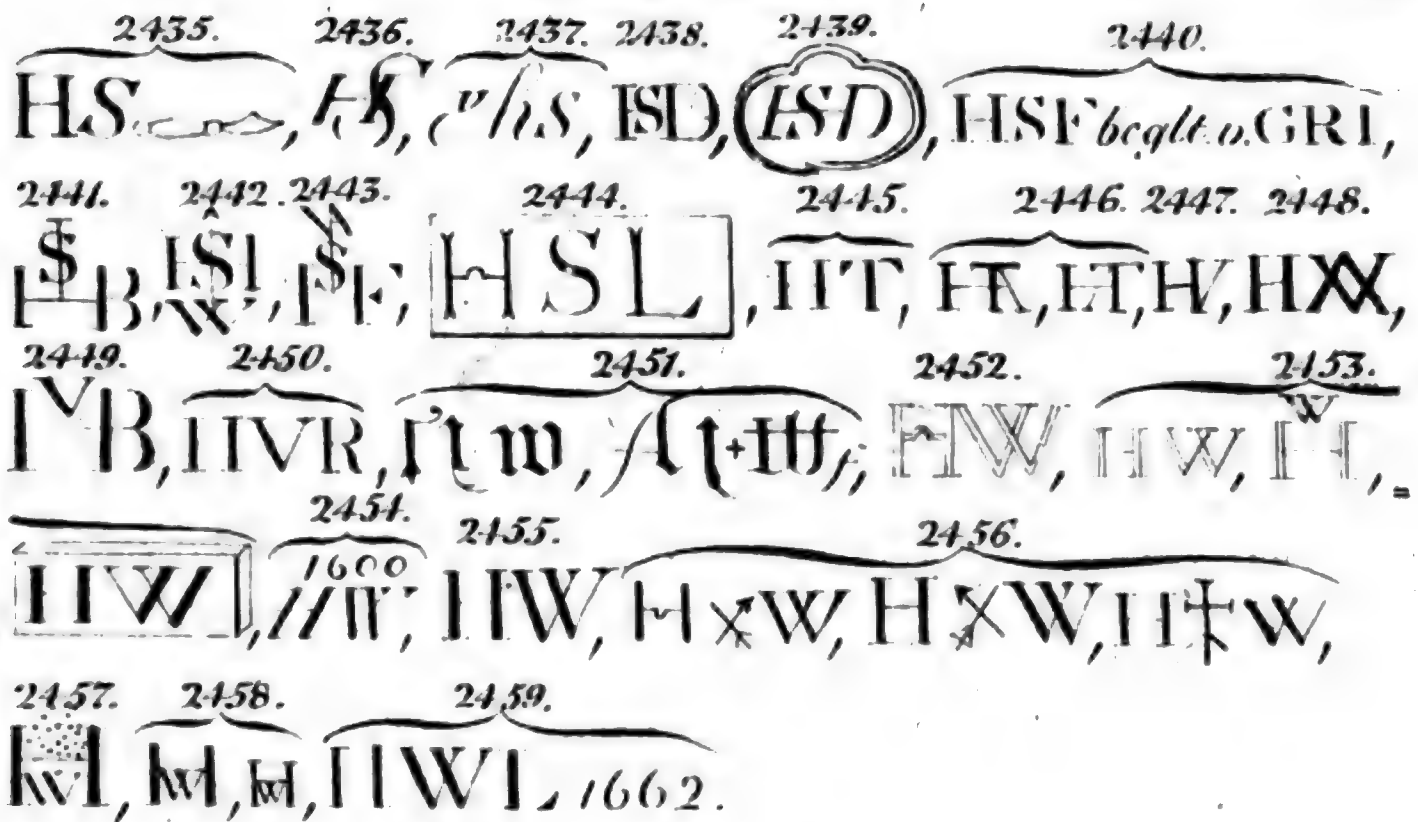 2435. 2436. 2437. 2438. 2439. 2440.
HS, HS, hS, HSD, HSD, HSF GRI,
2441. 2442. 2443. 2444. 2445. 2446. 2447. 2448.
HSB, HSW, HSF, HSL, HT, HTK, HT, HV, HW,
2449. 2450. 2451. 2452. 2453.
HVB, HVR, w, HW, HW, HW, =
2454. 2455. 2456.
HW, 1600 HW, HW, H W, H W, H W,
2457. 2458. 2459.
HW, HW, HW, HWL 1662.